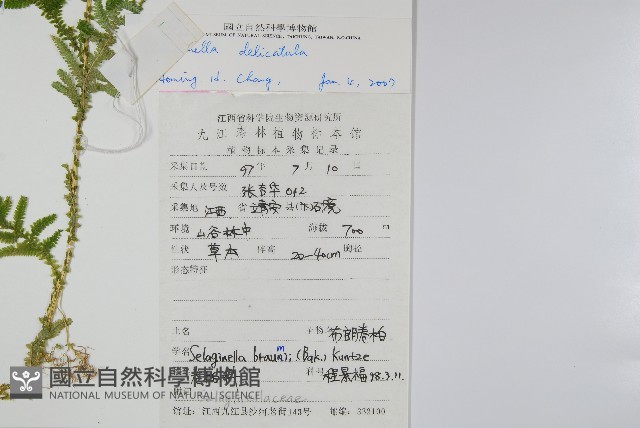 國立自然科學博物館
MUSEUM OF NATURAL SCIENCE, TAICHUNG, TAIWAN, R.O.CHINA
nella delicatula
H. Chang, Jan 6, 2007
江西省科学院生物资源研究所
九江森林植物标本馆
植物标本采集记录
采集日期 97年 7月 10日
采集人及号数 张吉华 012
采集地 江西 省 靖安 县
环境 山谷林中 海拔 700 m
性状 草本 体高 20-40cm 胸径
形态特征
土名
学名 Selaginella braunii (Bak.) Kuntze
程景福 98.3.11.
附记
Selaginellaceae
馆址：江西九江县沙河老街143号 邮编：332100
國立自然科學博物館
NATIONAL MUSEUM OF NATURAL SCIENCE